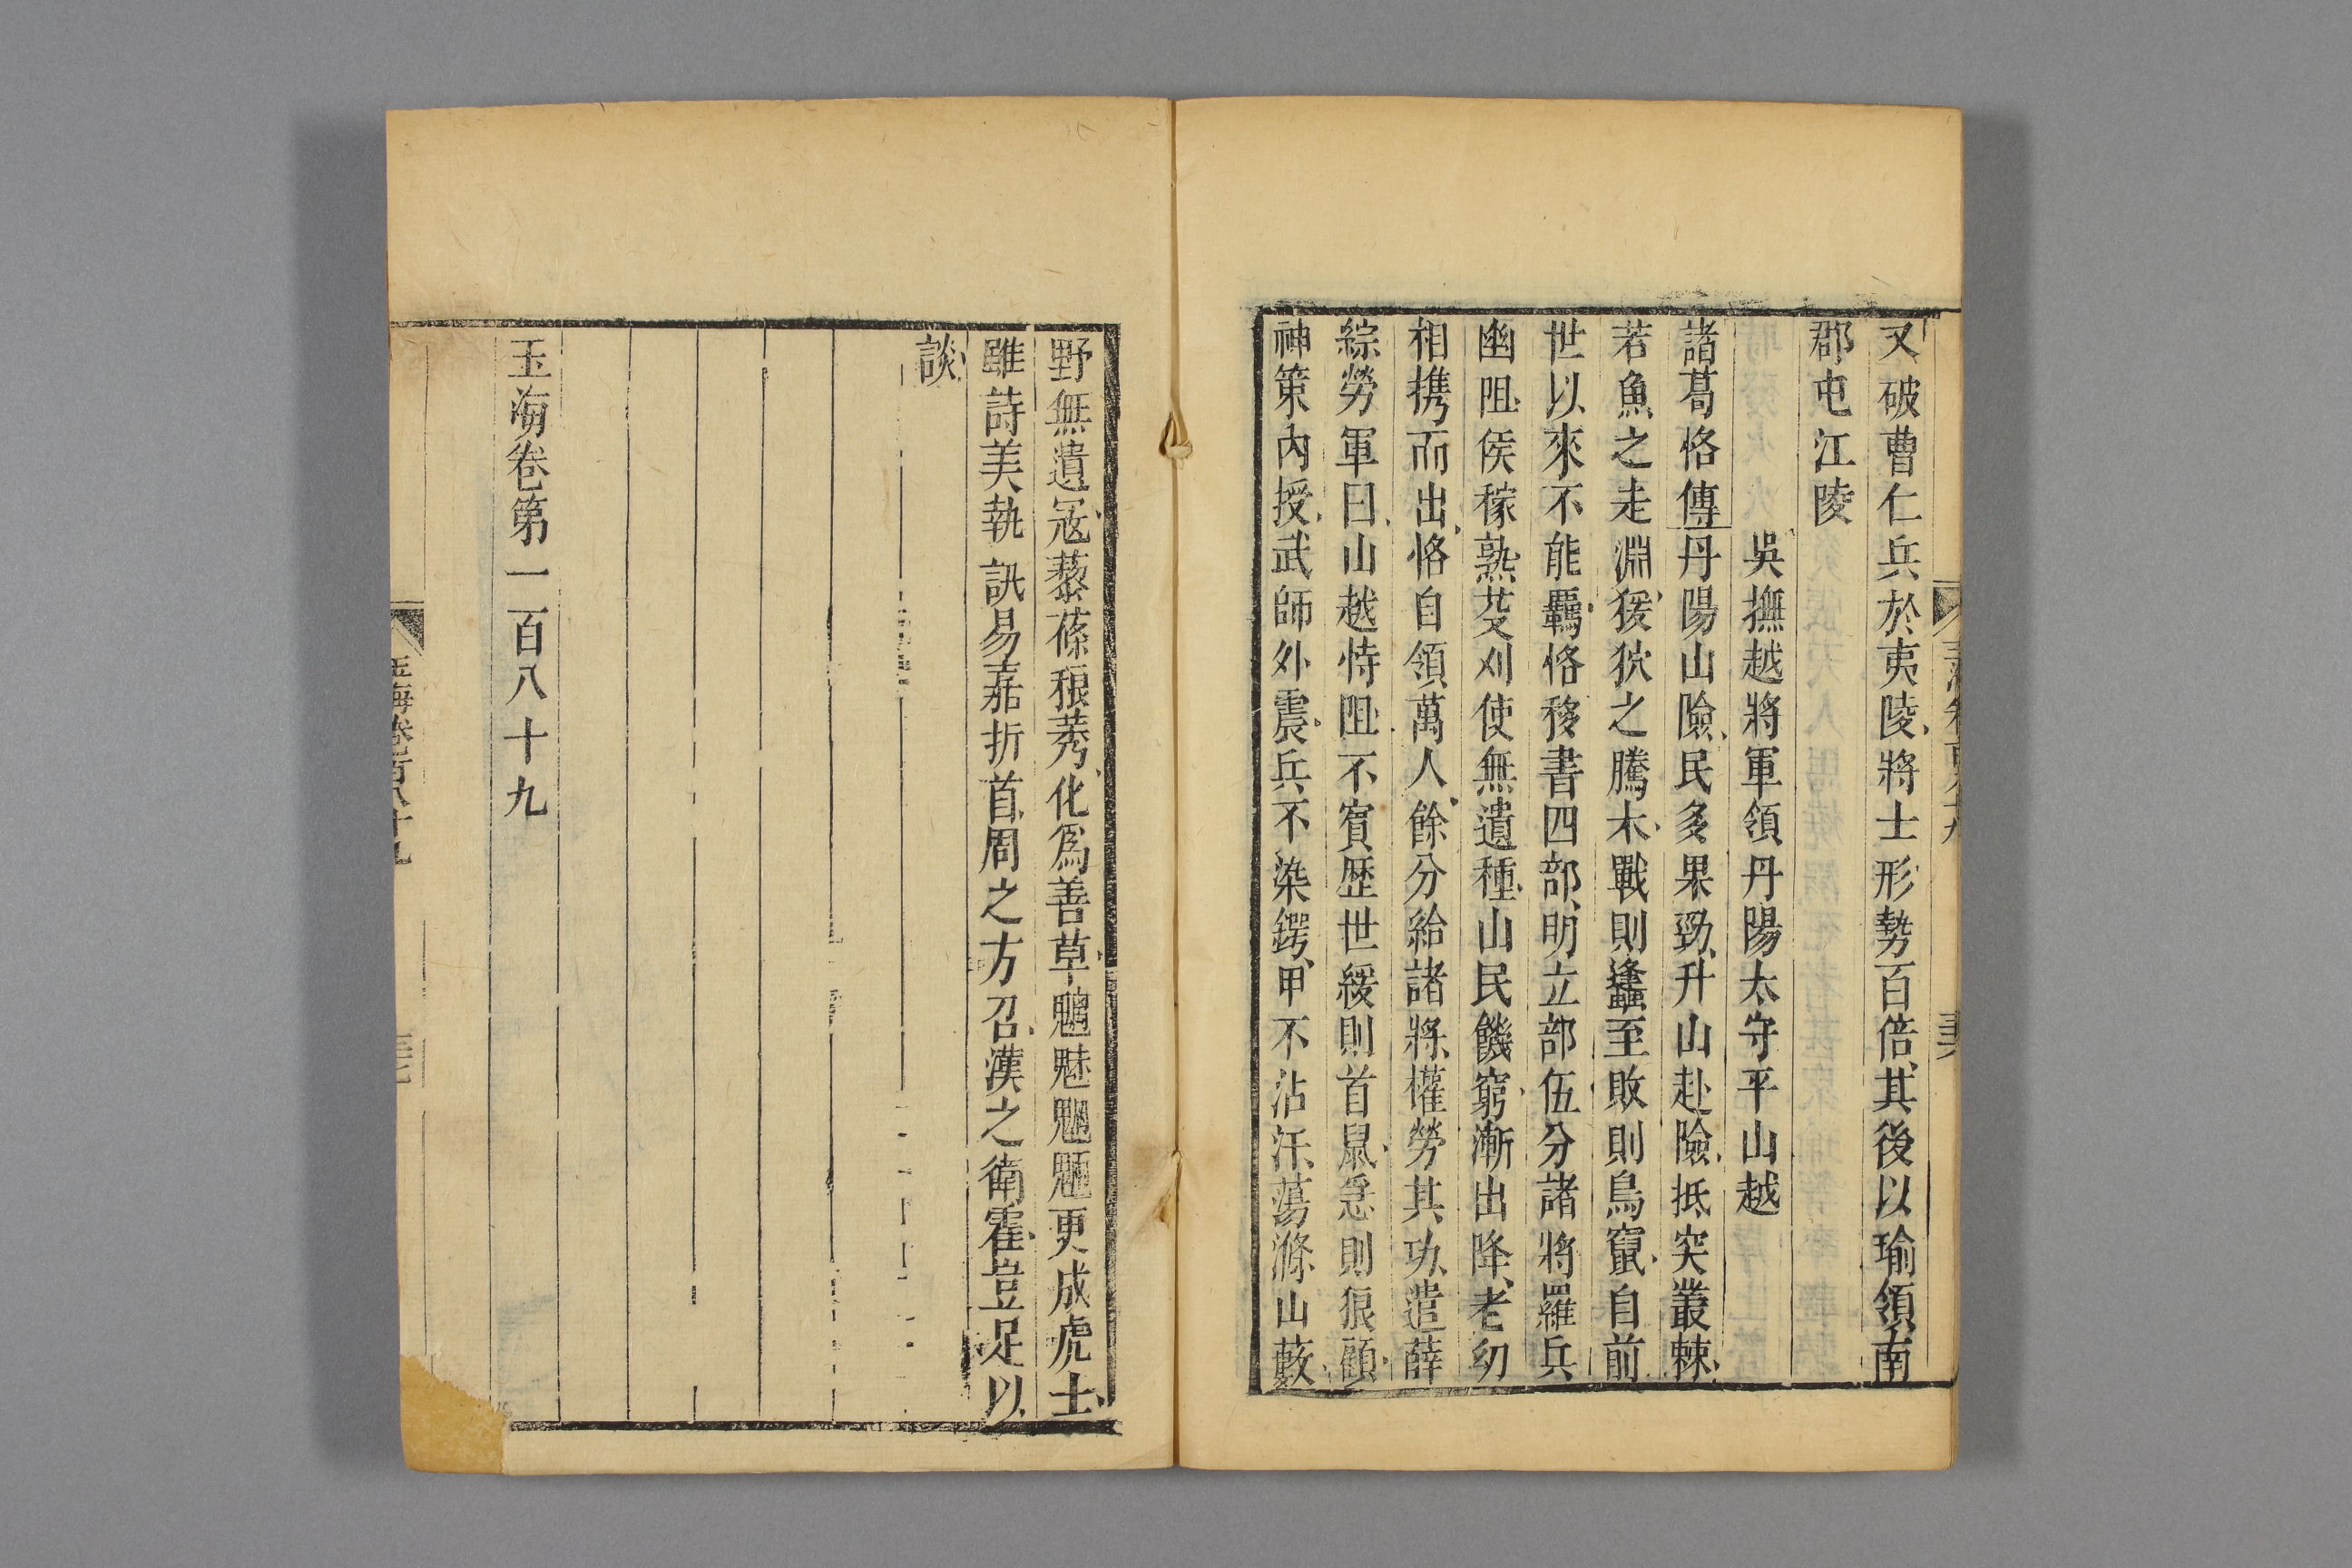 又破曹仁兵於夷陵將士形勢百倍其後以瑜領南
郡屯江陵
吳撫越將軍領丹陽太守平山越
諸葛恪傳丹陽山險民多果勁升山赴險抵突叢棘
若魚之走淵猨狖之騰木戰則蠭至敗則鳥竄自前
世以來不能羈恪移書四部明立部伍分諸將羅兵
幽阻俟稼熟芟刈使無遺種山民饑窮漸出降老幼
相携而出恪自領萬人餘分給諸將權勞其功遣薛
綜勞軍曰山越恃阻不賓歴世緩則首鼠急則狼顧
神策內授武師外震兵不染鍔甲不沾汗蕩滌山藪
野無遺寇藜蓧稂莠化爲善草魑魅魍魎更成虎士
雖詩美執訊易嘉折首周之方召漢之衛霍豈足以
談
玉海卷第一百八十九
玉海卷百八十九